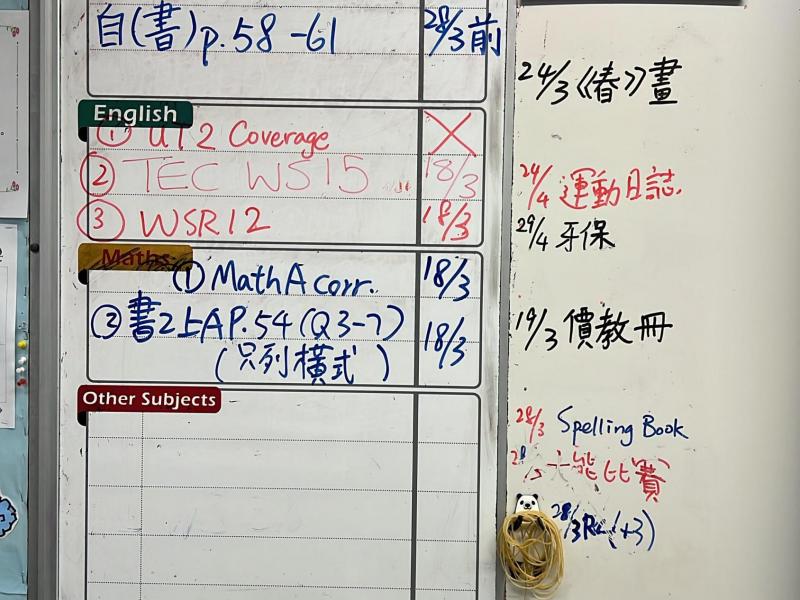 自(書)p.58-61 28/3前
English
① U12 Coverage X
② TEC WS15 18/3
③ WSR12 18/3
Maths
① MathA corr. 18/3
② 書2上A P.54(Q3-7) 18/3
(只列橫式)
Other Subjects
24/3《春》畫
24/4 運動日誌.
29/4 牙保
19/3 價教冊
28/3 Spelling Book
能比賽
28/3 (+3)